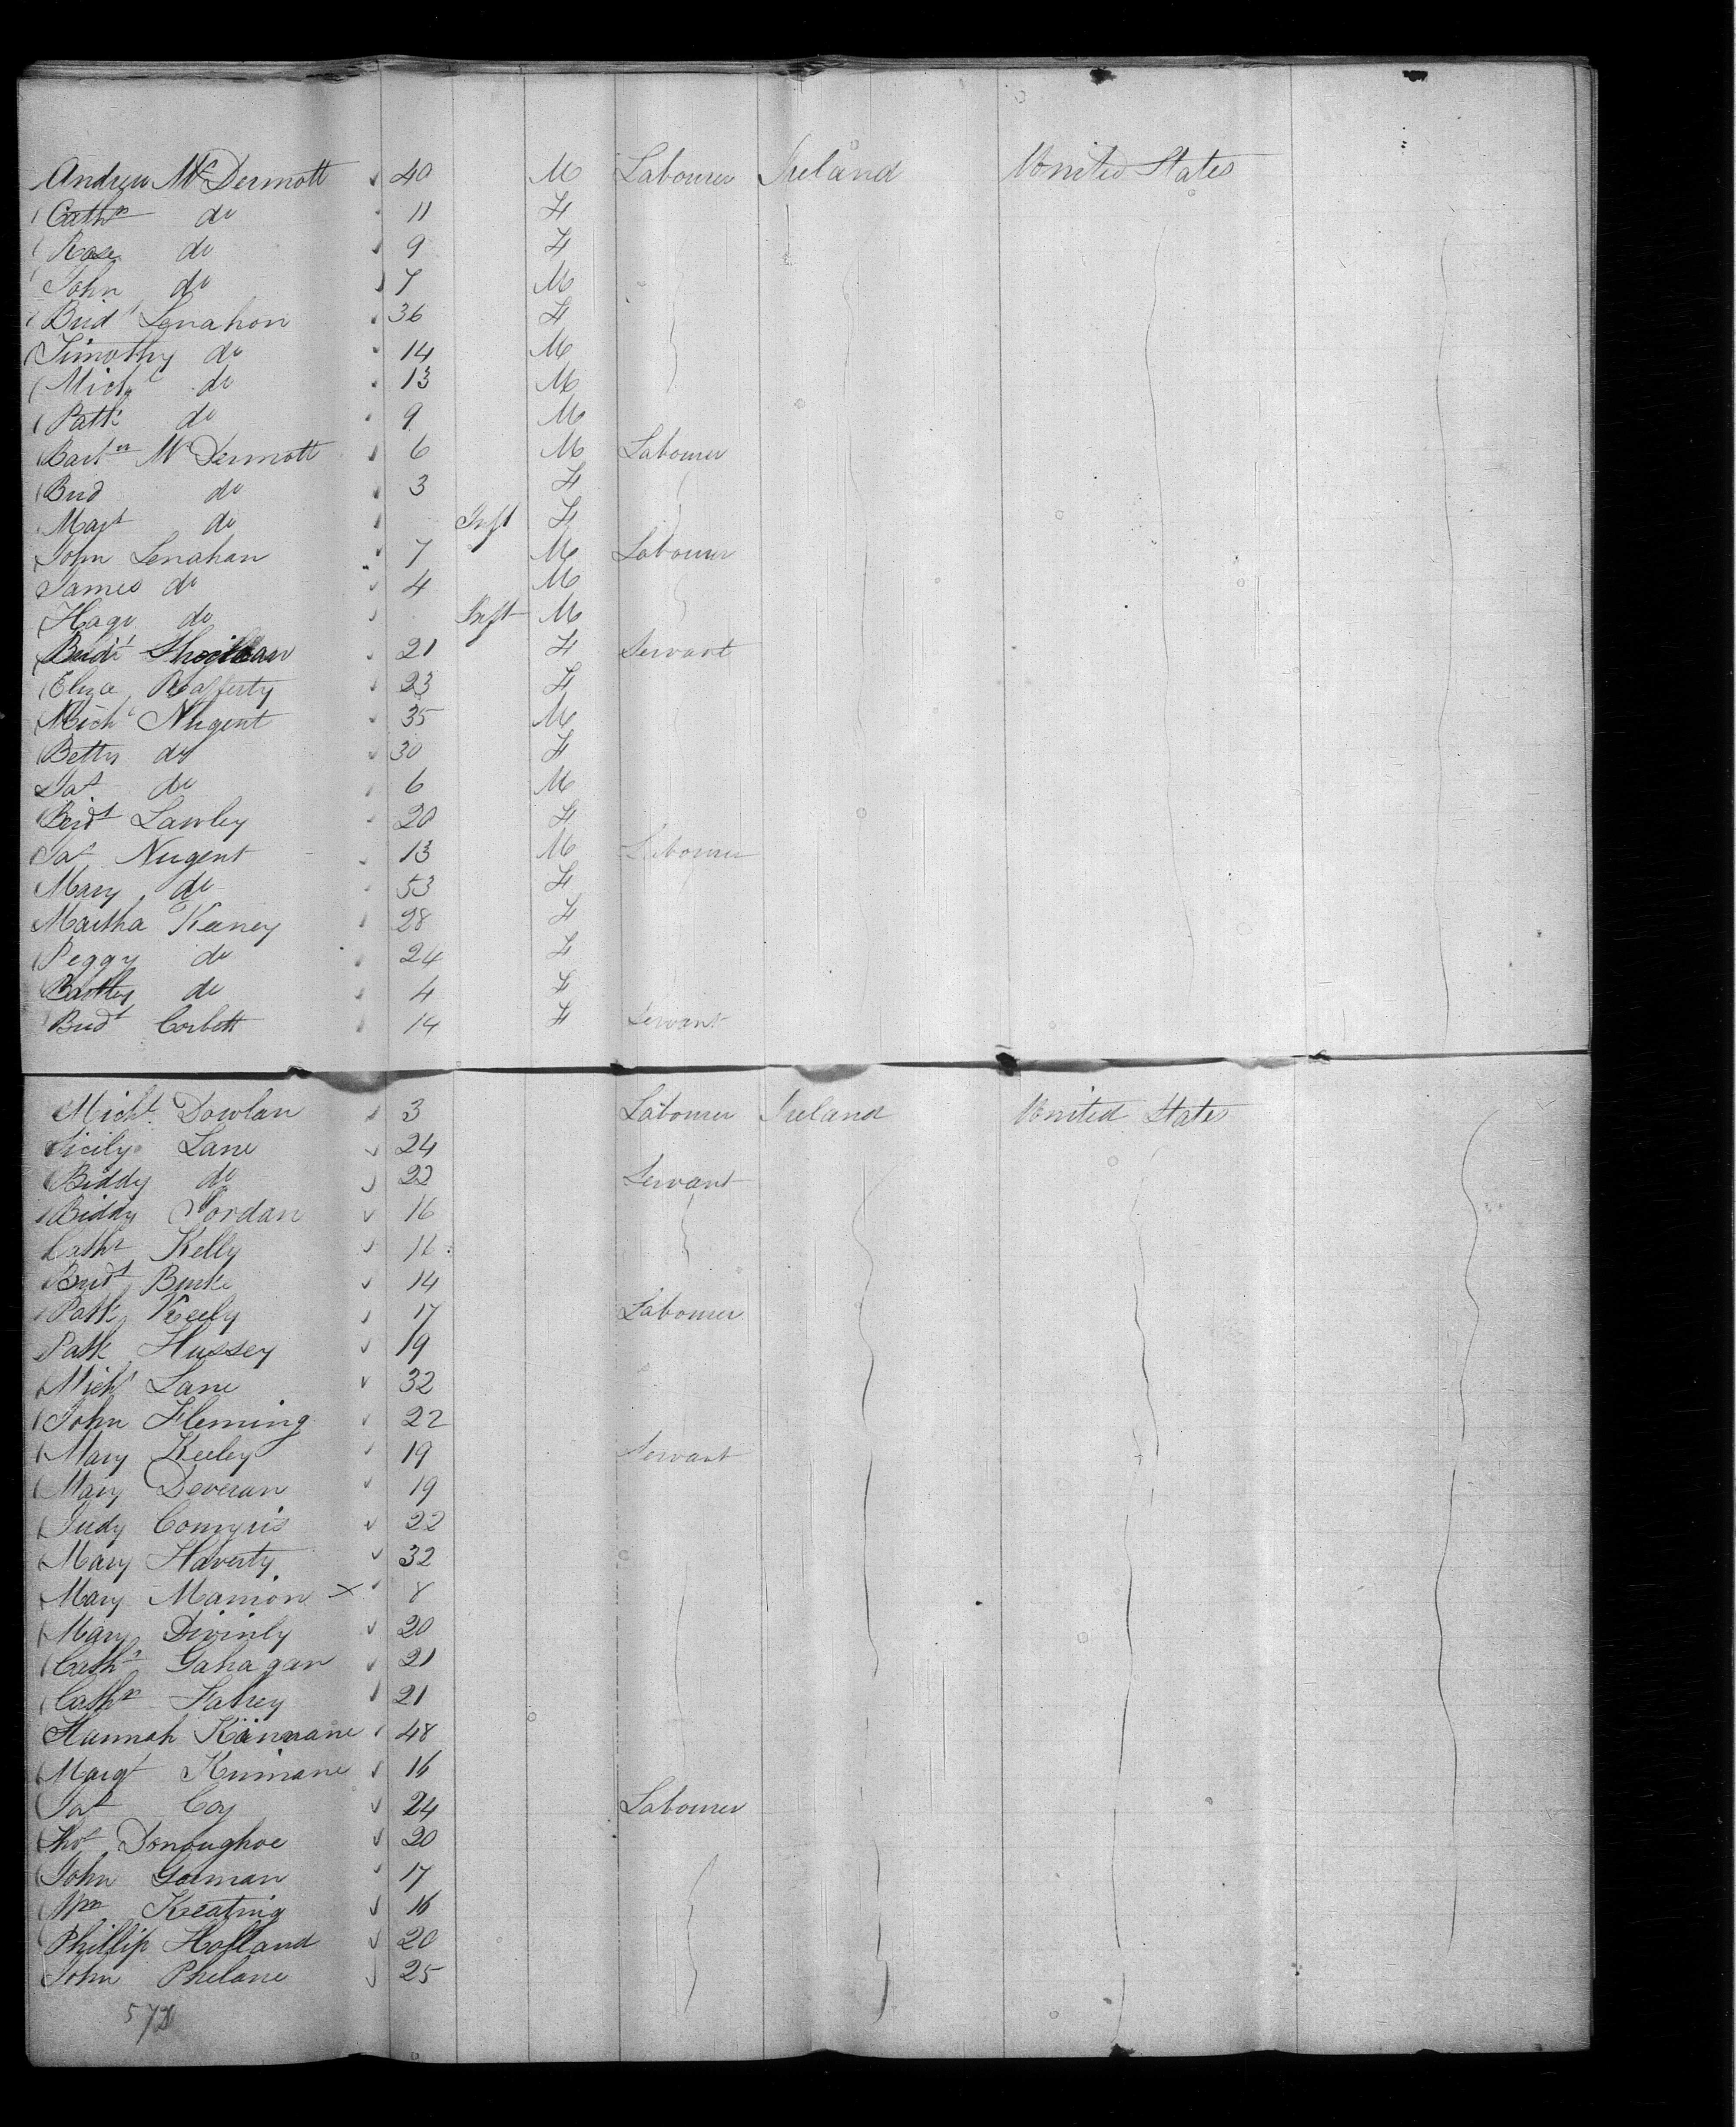 Andrew McDermott 40 M Labourer Ireland United States
Cathn do 11 F
Rose do 9 F
John do 7 M
Brid't Lenahon 36 F
Timothy do 14 M
Michl do 13 M
Patk do 9 M
Bartw McDermott 6 M Labourer
Brid do 3 F
Mart do Inft F
John Lenahan 7 M Labourer
James do 4 M
do Inft M
Bridt 21 F Servant
Eliza Rafferty 23 F
Michl Nugent 35 M
Betty do 30 F
Pat do 6 M
Bridt Lawley 20 F
Pat Nugent 13 M Labourer
Mary do 53 F
Martha Keaney 28 F
Peggy do 24 F
Barttey do 4 F
Bridt Corbett 14 F Servant
Michl Dowlan 3 Labourer Ireland United States
Sicily Lane 24
Biddy do 22 Servant
Biddy Jordan 16
Cathn Kelly 16
Bridt Burke 14
Patk Keely 17 Labourer
Patk Hussey 19
Michl Lane 32
John Fleming 22
Mary Keeley 19 Servant
Mary Deveran 19
Judy 22
Mary Haverty 32
Mary Manion × 8
Mary Divinly 20
Cathn Gahagan 21
Cathn Fahey 21
Hannah Kinnane 48
Margt Kinnane 16
Pat Coy 24 Labourer
Thos Donoughoe 20
John Gorman 17
Wm Keating 16
Phillip Holland 20
John Phelane 25
578